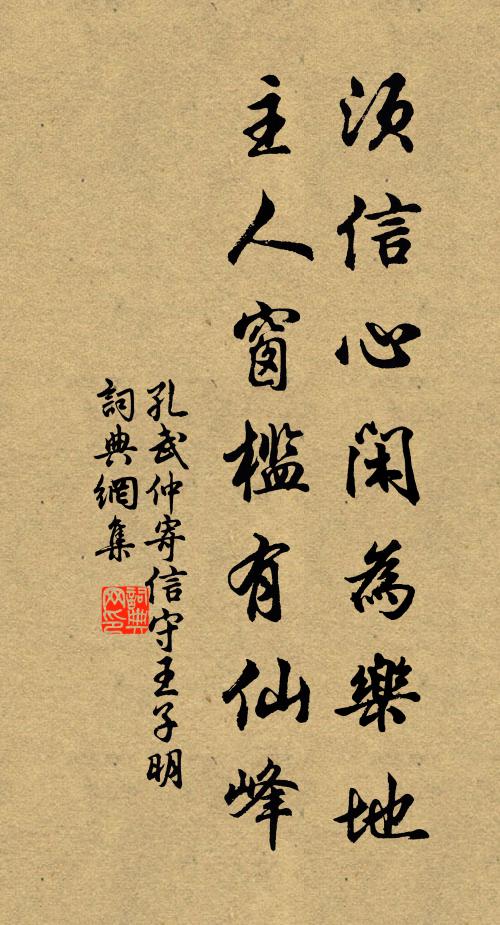 須信心閑為樂地
主人窗檻有仙峰
孔武仲寄信守王子明
詞典網集
詞典
网印